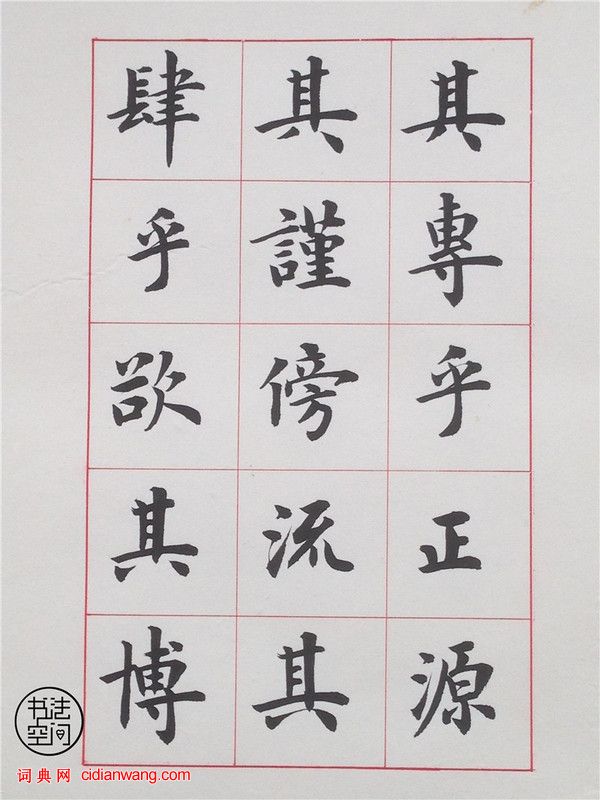 其專乎正源
其謹傍流其
肆乎欲其博
书法
空间
词典网 cidianwang.com